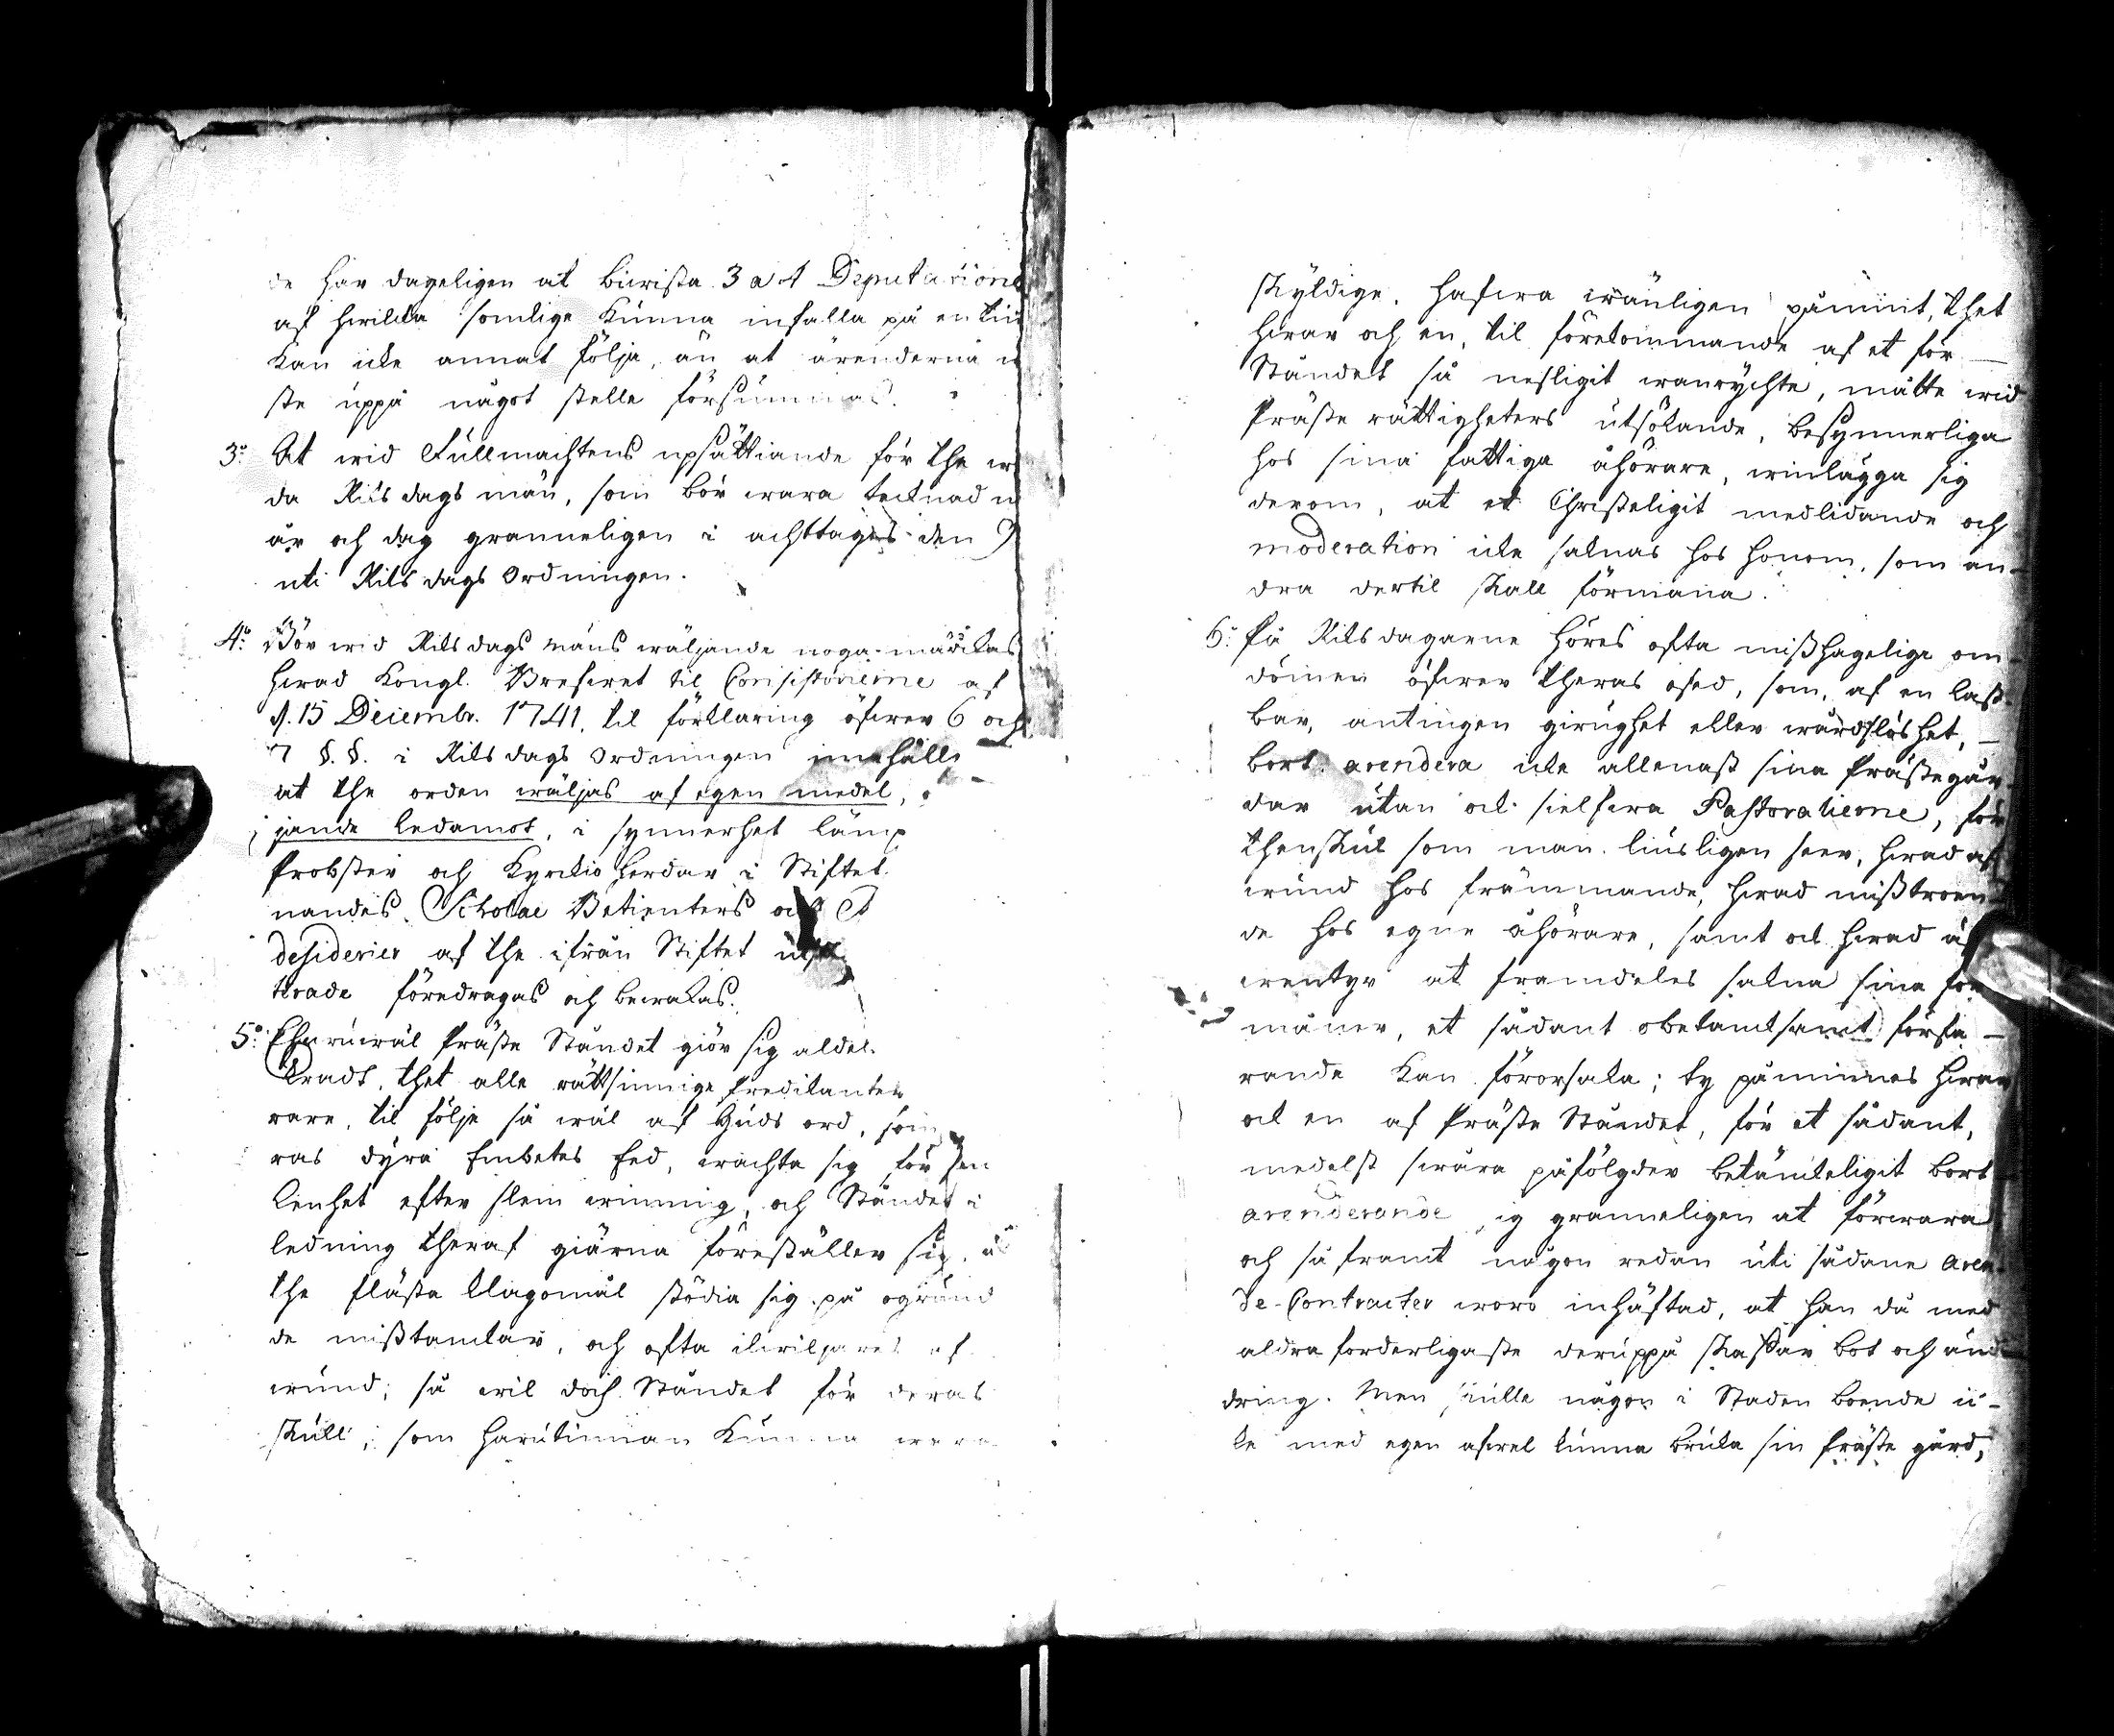 de har dageligen at biwista 3 a 4 Deputatione
af hwilcka somlige kunna infalla på en tii
kan icke annat följa, än at ärenderna
ste uppå något stelle försummas.
3:o At wid Fullmachtens upsättiande för the
da Riksdagsmän, som bör wara tecknad
år och dag granneligen i achttages den
uti Riksdags Ordningen.
4:o Bör wid Riksdagsmäns wäljande noga märckas
hwad Kongl. Brefwet til Consistorierne af
d. 15 Decembr. 1741. til förklaring öfwer 6 och
7 §.§. i Riksdags Ordningen innehåll
at the orden wäljas af egen medel,
jande ledamot, i synnerhet lämp
Probster och Kyrckio herdar i Stiftet
nandes. Scholae Betienters och
desiderier af the ifrån Stiftet
trade föredragas och bewakas.
5:o Ehuruwäl Präste Ståndet giör sig aldel.
kradt, thet alle rättsinnige Predikanter
rare, til följe så wäl af Guds ord, som
ras dyra Embetes Ed, wachta sig för
lenhet efter slem winning, och Ståndet i
ledning theraf giärna föreställer sig,
the flästa klagomål stödia sig på ogrund
de misstanckar, och ofta af
wund; så wil doch Ståndet för deras
skull, som harutinnan kunna wara
skyldige, hafwa wänligen påmint, thet
hwar och en, til förekommande af et för
Ståndet så nesligit wanrychte, måtte wid
Präste rättigheters utsökande, besynnerliga
hos sina fattiga åhörare, winlägga sig
derom, at et Christeligit medlidande och
moderation icke saknas hos honom, som an-
dra dertil skall förmana.
6:o På Riksdagarne höres ofta misshagelige om-
dömen öfwer theras osed, som, af en last-
bar, antingen girughet eller wårdslöshet,
bort arendera icke allenast sina Prästegår-
dar utan ock sielfwa Pastoratierne, för
thenskul som man liusligen seer, hwad af
wund hos främmande, hwad misstroen-
de hos egne åhörare, samt ock hwad
wentyr at framdeles sakna sina för
måner, et sådant obetänksamt förfa-
rande kan förorsaka; ty påminnes hwar
ock en af Präste Ståndet, för et sådant,
medelst swåra påfölgder betänckeligit bort
arenderande sig granneligen at förwara
och så framt någon redan uti sådane aren-
de-Contracter woro inhäftad, at han då med
aldra forderligaste deruppå skaffar bot och än-
dring. Men skulle någon i Staden boende ic-
ke med egen afwel kunna bruka sin Präste gård,